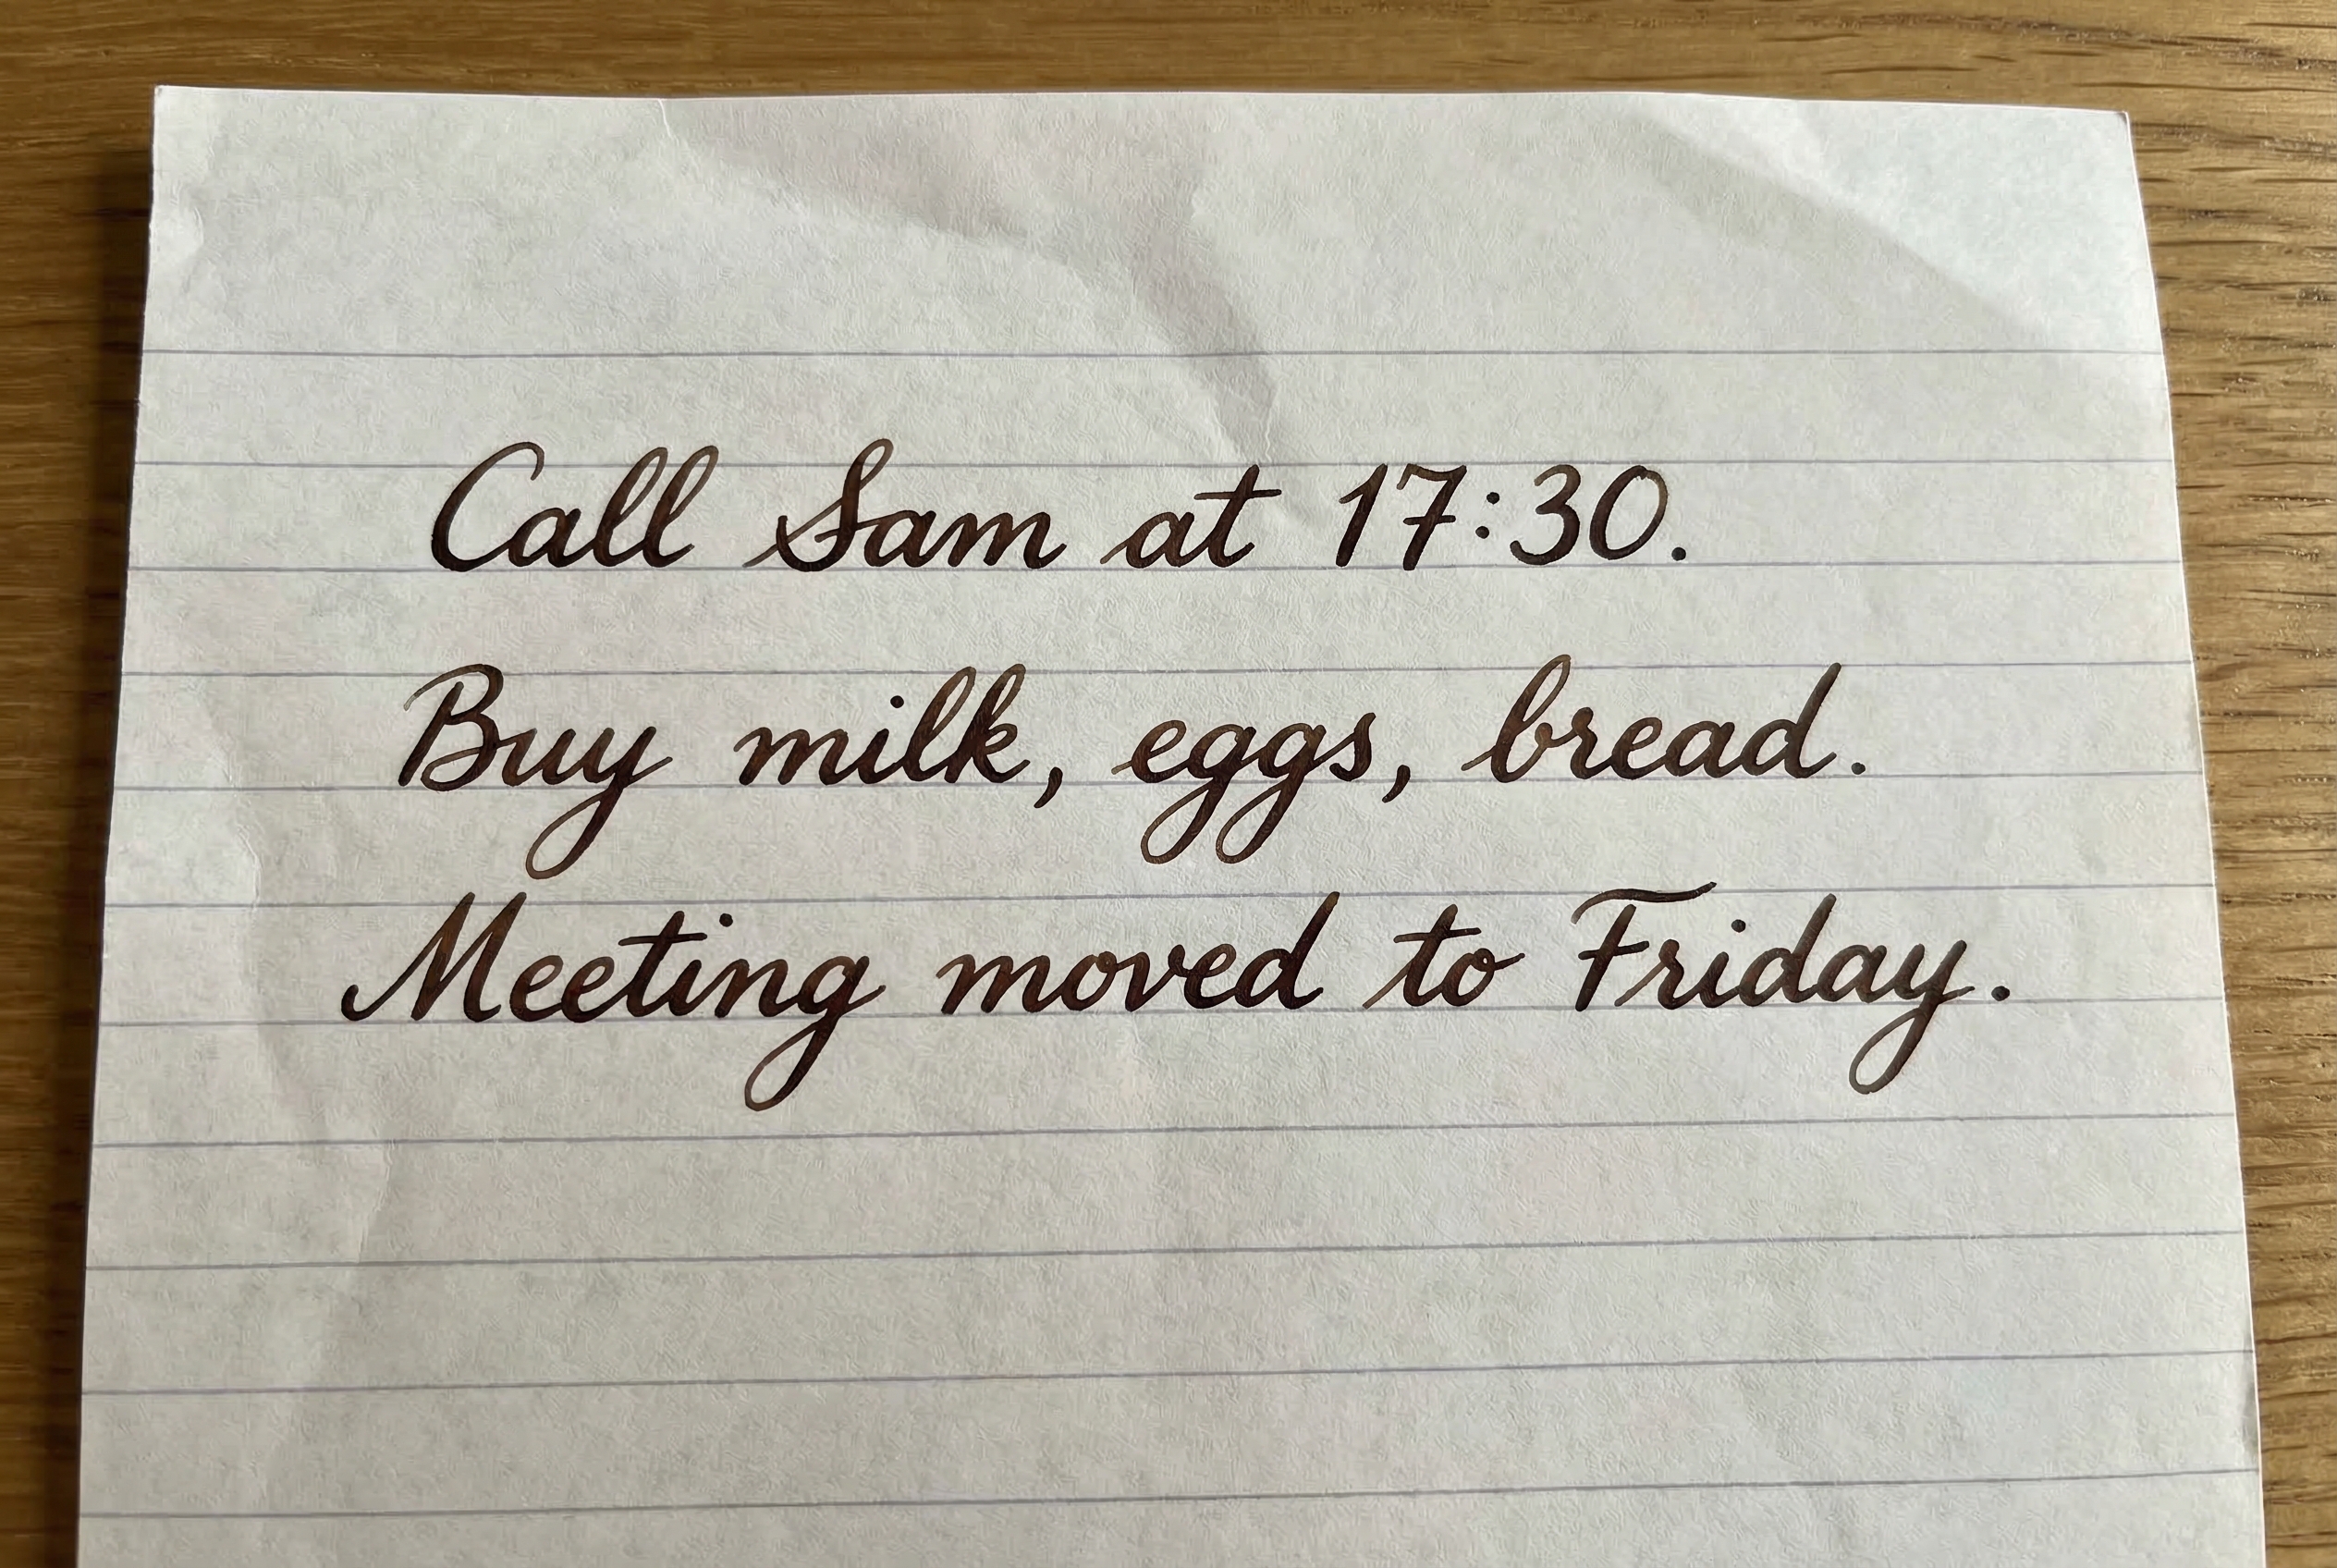 Call Sam at 17:30.
Buy milk, eggs, bread.
Meeting moved to Friday.